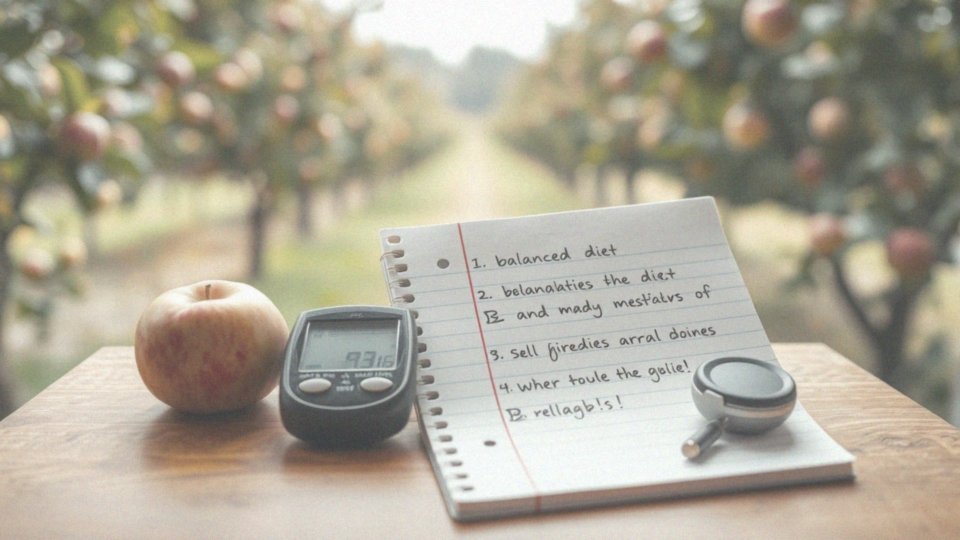 1. balanced diet
2. belanalaties the diet
and mady mestalvs of
3. sell firedies arral doines
4. wher toule the golie!
rellagb!s!